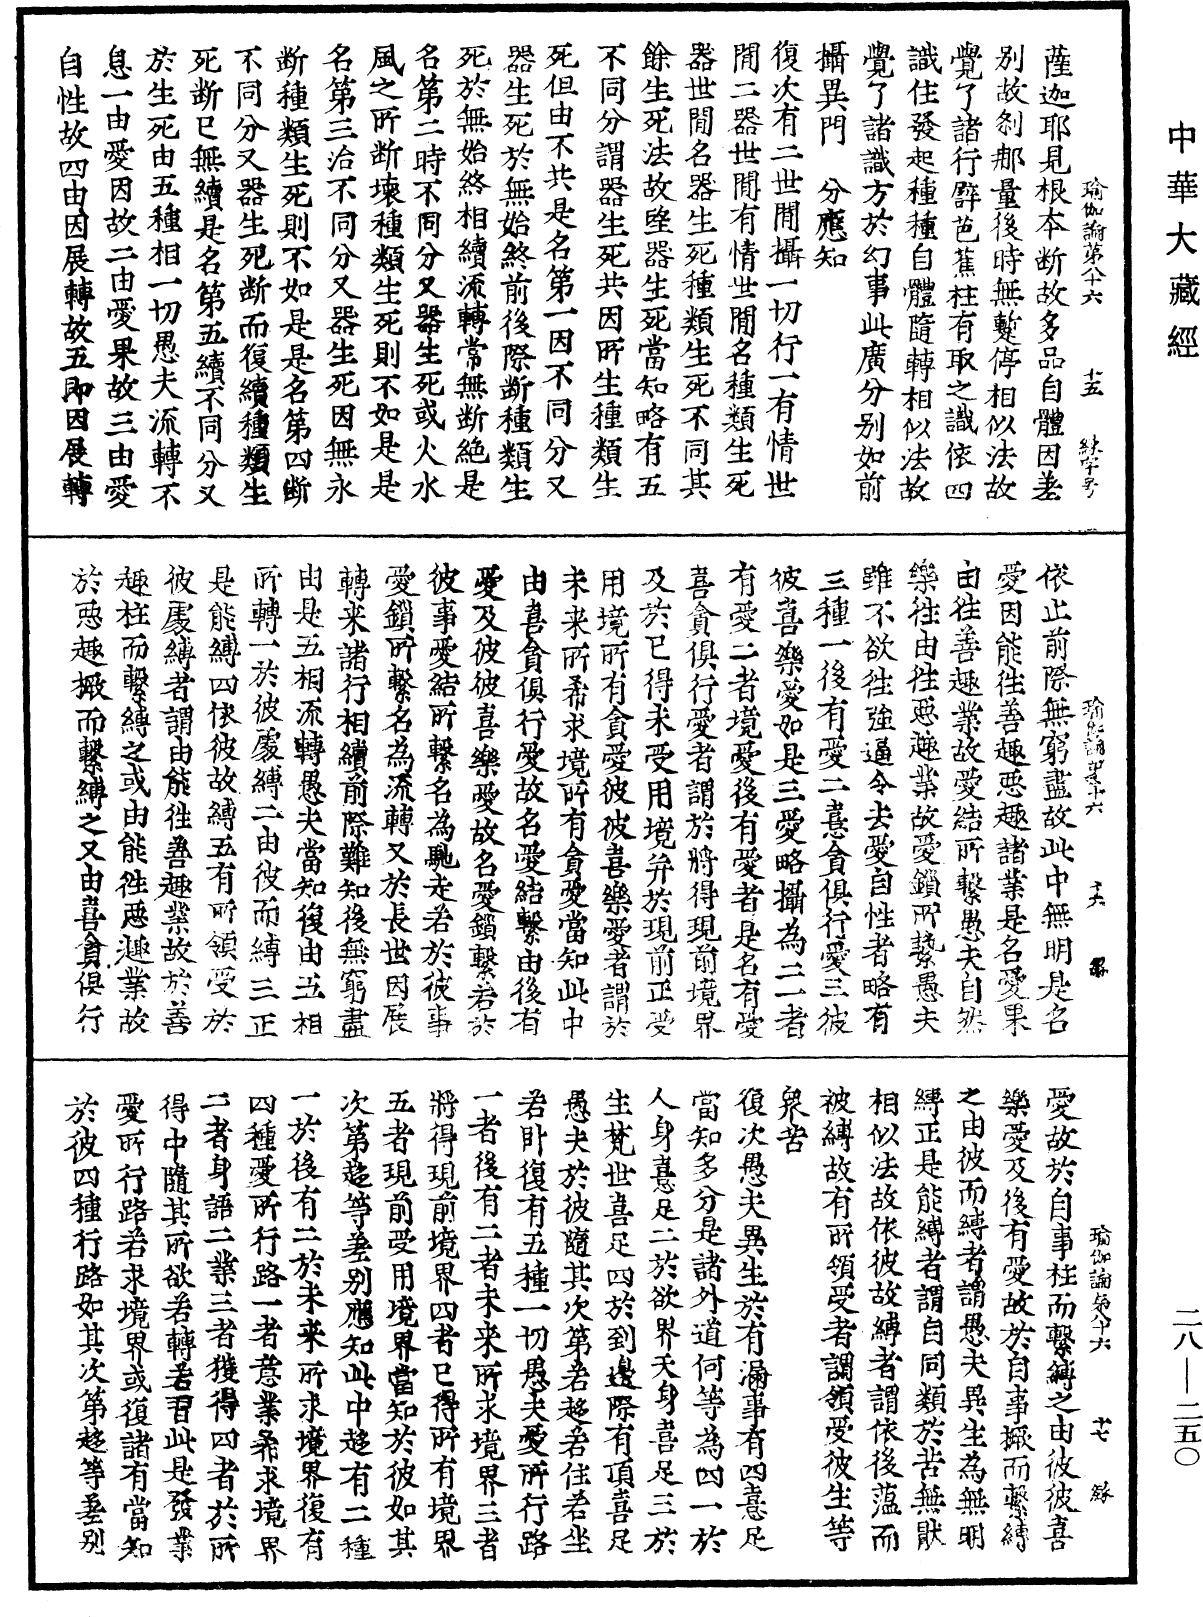 中華大藏經
瑜伽論第八十六　十五　練字号
薩迦耶見根本断故多品自體因差
别故刹那量後時無蹔停相似法故
覺了諸行臂芭蕉柱有取之識依四
識住發起種種自體隨轉相似法故
覺了諸識方於幻事此廣分别如前
攝異門　分應知
復次有二世間攝一切行一有情世
間二器世間有情世間名種類生死
器世間名器生死種類生死不同其
餘生死法故墜器生死當知略有五
不同分謂器生死共因所生種類生
死但由不共是名第一因不同分又
器生死於無始終前後際断種類生
死於無始終相續流轉常無断絶是
名第二時不同分又器生死或火水
風之所断壞種類生死則不如是是
名第三治不同分又器生死因無永
断種類生死則不如是是名第四断
不同分又器生死断而復續種類生
死断已無續是名第五續不同分又
於生死由五種相一切愚夫流轉不
息一由愛因故二由愛果故三由愛
自性故四由因展轉故五即因展轉
瑜伽論第八十六　十六　練
依止前際無窮盡故此中無明是名
愛因能往善趣惡趣諸業是名愛果
由往善趣業故愛結所繫愚夫自然
樂往由往惡趣業故愛鎖所縶愚夫
雖不欲往強逼令去愛自性者略有
三種一後有愛二憙貪俱行愛三彼
彼喜樂愛如是三愛略攝為二一者
有愛二者境愛後有愛者是名有愛
喜貪俱行愛者謂於將得現前境界
及於已得未受用境并於現前正受
用境所有貪愛彼彼喜樂愛者謂於
未來所希求境所有貪愛當知此中
由喜貪俱行愛故名愛結繫由後有
愛及彼彼喜樂愛故名愛鎖繫若於
彼事愛結所繫名為馳走若於彼事
愛鎖所繫名為流轉又於長世因展
轉来諸行相續前際難知後無窮盡
由是五相流轉愚夫當知復由五相
所轉一於彼處縛二由彼而縛三正
是能縛四依彼故縛五有所領受於
彼處縛者謂由能往善趣業故於善
趣柱而繫縛之或由能往惡趣業故
於惡趣橛而繫縛之又由喜貪俱行
瑜伽論第八十六　十七　練
愛故於自事柱而繫縛之由彼彼喜
樂愛及後有愛故於自事橛而繫縛
之由彼而縛者謂愚夫異生為無明
縛正是能縛者謂自同類於苦無猒
相似法故依彼故縛者謂依後蕰而
被縛故有所領受者謂領受彼生等
衆苦
復次愚夫異生於有漏事有四憙足
當知多分是諸外道何等為四一於
人身憙足二於欲界天身喜足三於
生梵世喜足四於到邊際有頂喜足
愚夫於彼隨其次第若趍若住若坐
若卧復有五種一切愚夫愛所行路
一者後有二者未來所求境界三者
將得現前境界四者已得所有境界
五者現前受用境界當知於彼如其
次第趍等差别應知此中趍有二種
一於後有二於未來所求境界復有
四種愛所行路一者意業希求境界
二者身語二業三者獲得四者於所
得中隨其所欲若轉若習此是發業
愛所行路若求境界或復諸有當知
於彼四種行路如其次第趍等差别
二八—二五〇